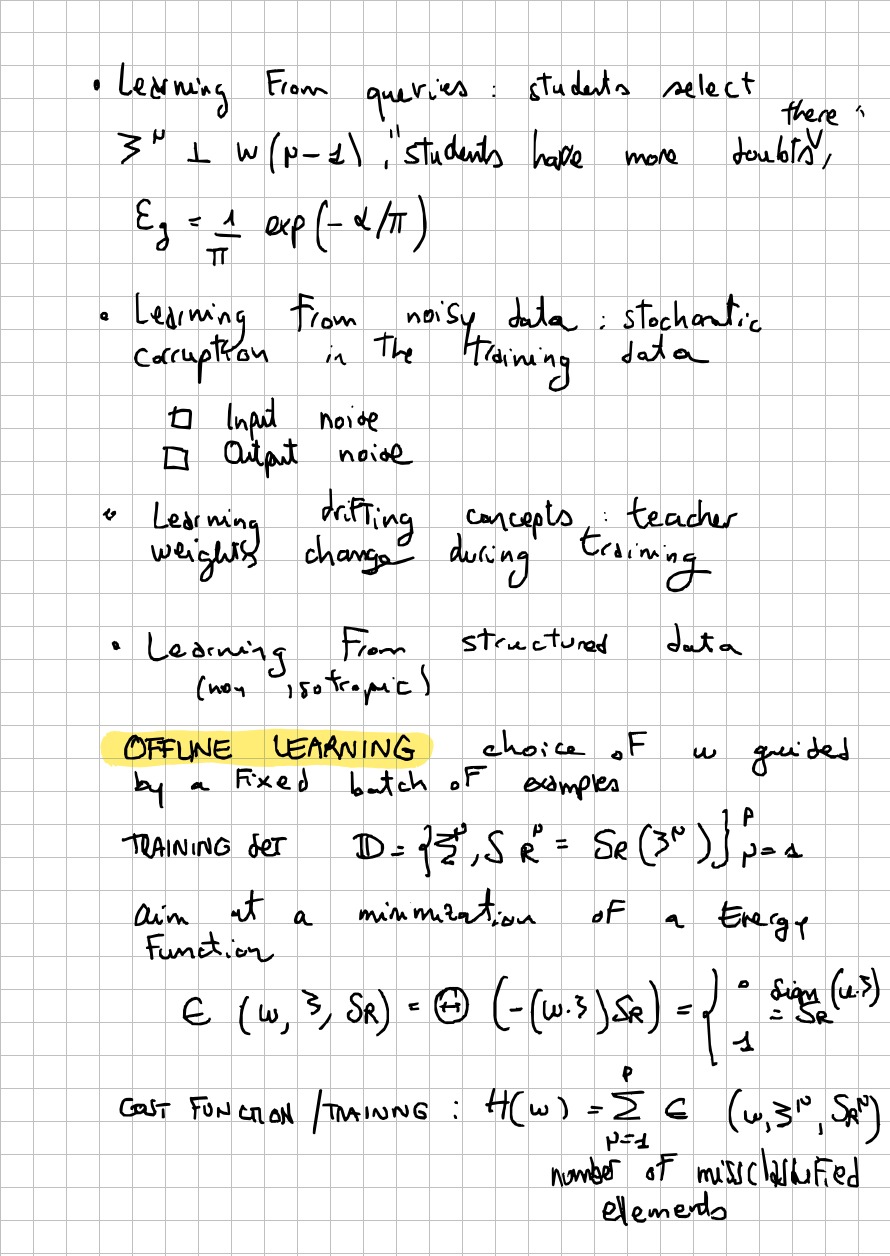 • Learning From queries : students select
ξ^μ ⊥ w(μ-1), "students have more doubts there"
ε_g = 1/π exp(-α/π)
• Learning from noisy data : stochastic
corruption in the training data
□ Input noise
□ Output noise
• Learning drifting concepts : teacher
weights change during training
• Learning From structured data
(non isotropic)
OFFLINE LEARNING choice of w guided
by a Fixed batch of examples
TRAINING SET D = {ξ^μ, S_R^μ = S_R(ξ^μ)}_{μ=1}^P
aim at a minimization of a Energy
Function
ϵ (w, ξ, S_R) = Θ (-(w·ξ)S_R) = { 0 sign(w·ξ) = S_R
1
COST FUNCTION / TRAINING : H(w) = Σ_{μ=1}^P ϵ (w, ξ^μ, S_R^μ)
number of missclassified
elements